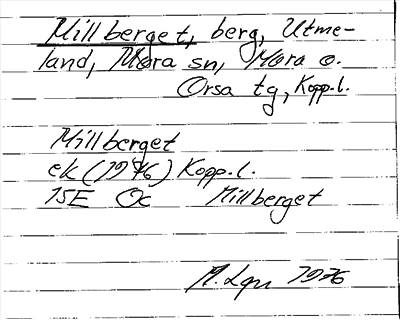 Millberget, berg, Utme-
land, Mora sn, Mora o.
Orsa tg, Kopp.l.
Millberget
ek (1976) Kopp.l.
15E Oc Millberget
1976